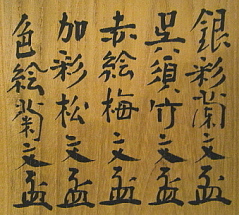 銀彩蘭文盃
呉須竹文盃
赤絵梅文盃
加彩松文盃
色絵菊文盃